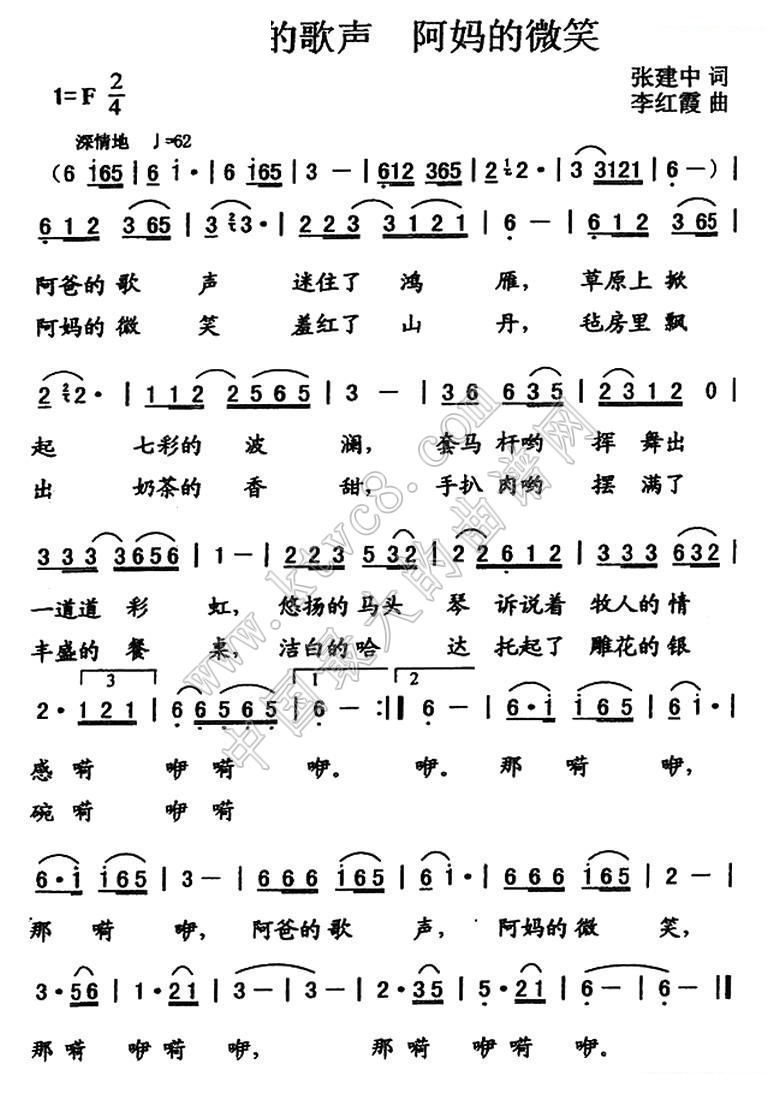 的歌声 阿妈的微笑
张建中 词
1=F 2/4
李红霞 曲
深情地 ♩=62
(6 i65 | 6 i· | 6 i65 | 3 — | 612 365 | 2 2· | 3 3121 | 6 — ) |
612 365 | 3 3· | 223 3121 | 6 — | 612 365 |
阿爸的 歌 声 迷住了 鸿 雁, 草原上 掀
阿妈的 微 笑 羞红了 山 丹, 毡房里 飘
2 2· | 112 2565 | 3 — | 36 635 | 2312 0 |
起 七彩的 波 澜, 套马 杆哟 挥 舞出
出 奶茶的 香 甜, 手扒 肉哟 摆 满了
333 3656 | 1 — | 223 532 | 22612 | 333 632 |
一道道 彩 虹, 悠扬的 马头 琴 诉说着 牧人的 情
丰盛的 餐 桌, 洁白的 哈 达 托起了 雕花的 银
3 1 2
2· 121 | 6 6565 | 6 — :‖ 6 — | 6·i i65 | 6 i· |
感 嗬 咿嗬 咿。 咿。 那 嗬 咿,
碗 嗬 咿嗬
6·i i65 | 3 — | 666 i65 | 6 i· | 666 i65 | 2 — |
那 嗬 咿, 阿爸的 歌 声, 阿妈的 微 笑,
3·56 | 1·21 | 3 — | 3 — | 2·35 | 5·21 | 6 — | 6 — ‖
那 嗬 咿嗬 咿, 那 嗬 咿嗬 咿。
www.ktvc8.com
中国最大的曲谱网